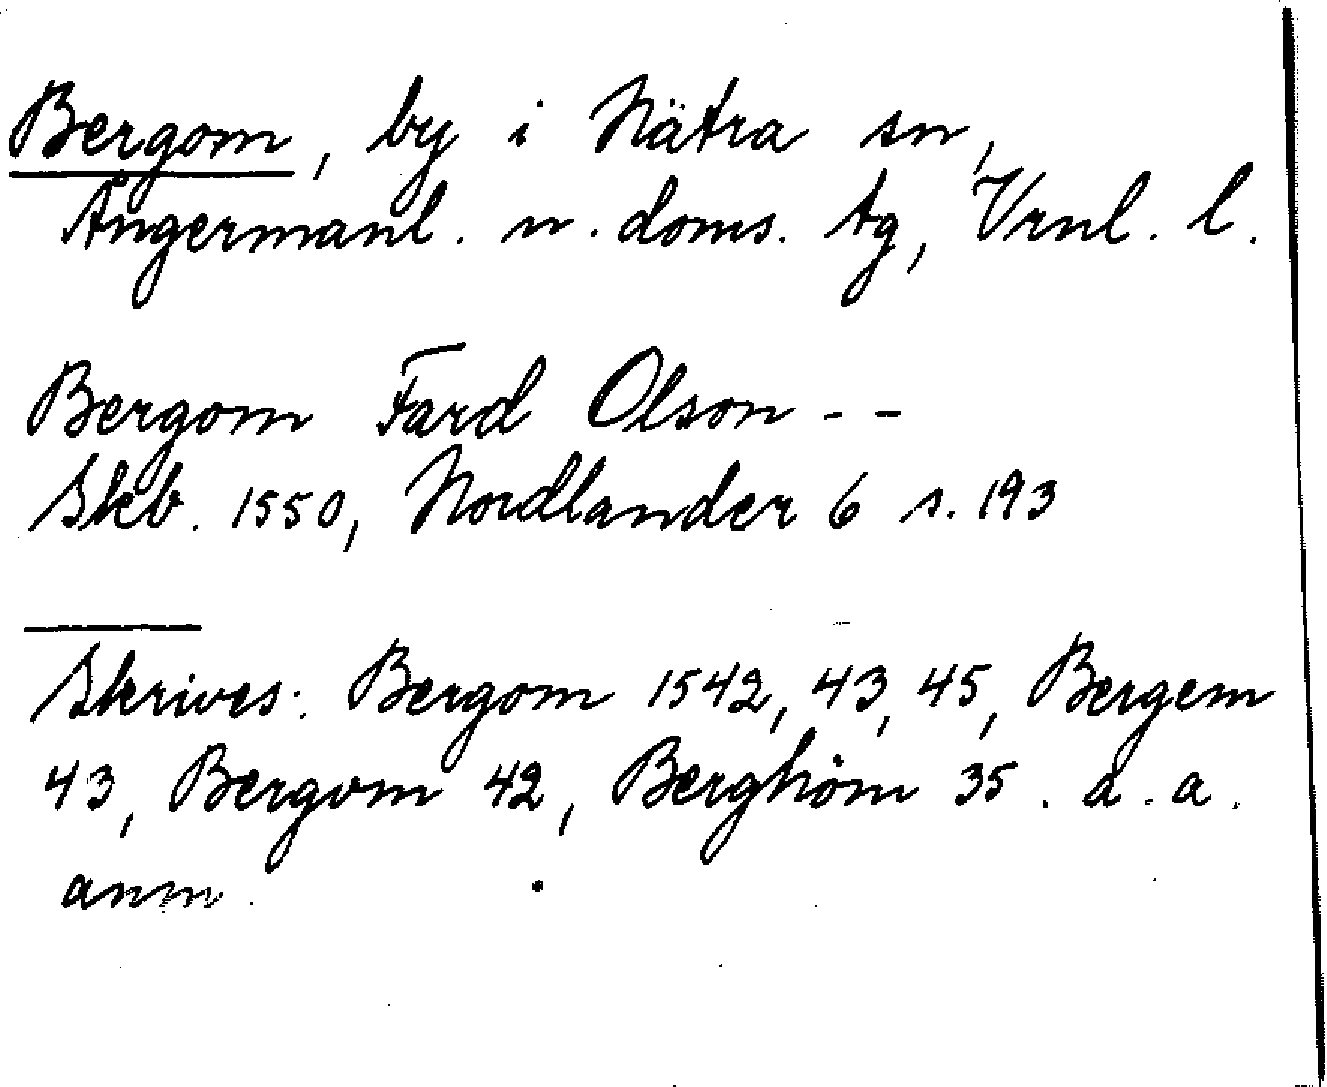 Bergom, by i Nätra sn,
Ångermanl. n. doms. tg, Vrnl. l.
Bergom Fard Olson - -
Skb. 1550, Nordlander 6 s. 193
Skrives: Bergom 1542, 43, 45, Bergem
43, Bergvm 42, Berghöm 35. a. a.
anm.